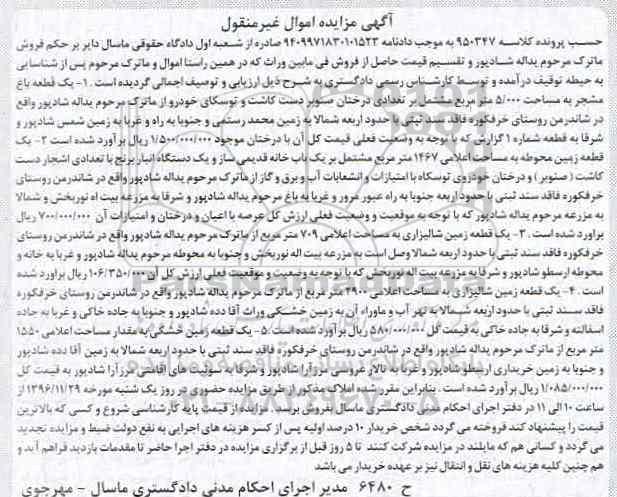 آگهی مزایده اموال غیرمنقول
حسب پرونده کلاسه ۹۵۰۳۴۷ به موجب دادنامه ۹۴۰۹۹۷۱۸۳۰۱۰۱۵۲۳ صادره از شعبه اول دادگاه حقوقی ماسال دایر بر حکم فروش
ماترک مرحوم یداله شادپور و تقسیم قیمت حاصل از فروش فی مابین وراث که در همین راستا اموال و ماترک مرحوم پس از شناسایی
به حیطه توقیف درآمده و توسط کارشناس رسمی دادگستری به شرح ذیل ارزیابی و توصیف اجمالی گردیده است . ۱- یک قطعه باغ
مشجر به مساحت ۵/۰۰۰ متر مربع مشتمل بر تعدادی درختان صنوبر دست کاشت و توسکای خودرو از ماترک مرحوم یداله شادپور واقع
در شاندرمن روستای خرفکوره فاقد سند ثبتی با حدود اربعه شمالا به زمین محمد رستمی و جنوبا به راه و غربا به زمین شمس شادپور و
شرقا به قطعه شماره ۱ گزارش که با توجه به وضعیت فعلی قیمت کل آن با درختان موجود ۱/۵۰۰/۰۰۰/۰۰۰ ریال برآورد شده است ۲- یک
قطعه زمین محوطه به مساحت اعلامی ۱۴۶۷ متر مربع مشتمل بر یک باب خانه قدیمی ساز و یک دستگاه انبار برنج با تعدادی اشجار دست
کاشت (صنوبر) و درختان خودروی توسکاه با امتیازات و انشعابات آب و برق و گاز از ماترک مرحوم یداله شادپور واقع در شاندرمن روستای
خرفکوره فاقد سند ثبتی با حدود اربعه جنوبا به راه عبور مرور و غربا به باغ مرحوم یداله شادپور و شرقا به مزرعه بیت اله نوربخش و شمالا
به مزرعه مرحوم یداله شادپور که با توجه به موقعیت و وضعیت فعلی ارزش کل عرصه با اعیان و درختان و امتیازات آن ۷۰۰/۰۰۰/۰۰۰ ریال
برآورد شده است . ۳- یک قطعه زمین شالیزاری به مساحت اعلامی ۷۰۹ متر مربع از ماترک مرحوم یداله شادپور واقع در شاندرمن روستای
خرفکوره فاقد سند ثبتی با حدود اربعه شمالا وصل است به مزرعه بیت اله نوربخش و جنوبا به محوطه مرحوم یداله شادپور و غربا به خانه و
محوطه ارسطو شادپور و شرقا به مزرعه بیت اله نوربخش که با توجه به وضعیت و موقعیت فعلی ارزش کل آن ۱۰۶/۳۵۰/۰۰۰ ریال برآورد شده
است . ۴- یک قطعه زمین شالیزاری به مساحت اعلامی ۲۹۰۰ متر مربع از ماترک مرحوم یداله شادپور واقع در شاندرمن روستای خرفکوره
فاقد سند ثبتی با حدود اربعه شمالا به نهر آب و ماوراء آن به زمین خشکی وراث آقا دده شادپور و جنوبا به جاده خاکی و غربا به جاده
اسفالته و شرقا به جاده خاکی به قیمت کل ۵۸۰/۰۰۰/۰۰۰ ریال برآورد شده است .۵- یک قطعه زمین خشکی به مقدار مساحت اعلامی ۱۵۵۰
متر مربع از ماترک مرحوم یداله شادپور واقع در شاندرمن روستای خرفکوره فاقد سند ثبتی با حدود اربعه شمالا به زمین آقا دده شادپور
و جنوبا به زمین خریداری ارسطو شادپور و غربا به تالار عروسی مرزآرا شادپور و شرقا به سوئیت های اقامتی مرزآرا شادپور به قیمت کل
۱/۰۸۵/۰۰۰/۰۰۰ ریال برآورد شده است . بنابراین مقرر شده املاک مذکور از طریق مزایده حضوری در روز یک شنبه مورخه ۱۳۹۶/۱۱/۲۹ از
ساعت ۱۰ الی ۱۱ در دفتر اجرای احکام مدنی دادگستری ماسال بفروش برسد . مزایده از قیمت پایه کارشناسی شروع و کسی که بالاترین
قیمت را پیشنهاد کند فروخته می گردد شخص خریدار ۱۰ درصد اولیه پس از کسر هزینه های اجرایی به نفع دولت ضبط و مزایده تجدید
می گردد و کسانی هم که مایلند در مزایده شرکت کنند تا ۵ روز قبل از برگزاری مزایده در دفتر اجرا حاضر تا مقدمات بازدید فراهم آید و
هم چنین کلیه هزینه های نقل و انتقال نیز بر عهده خریدار می باشد
ح ۶۴۸۰ مدیر اجرای احکام مدنی دادگستری ماسال - مهرجوی